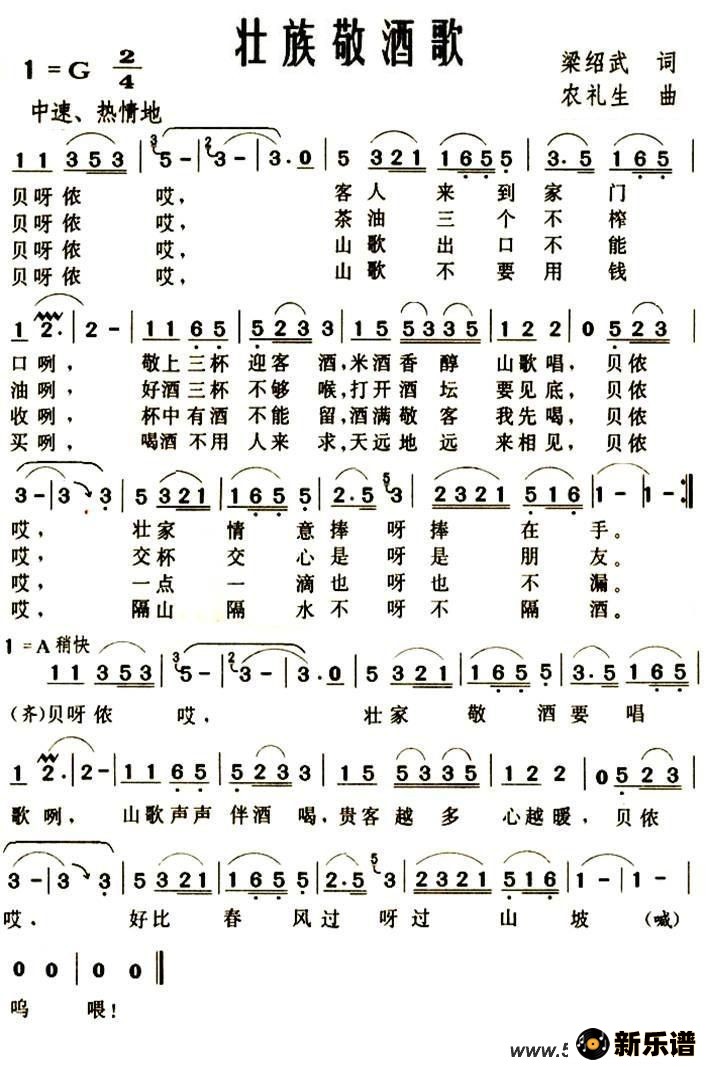 壮族敬酒歌
1=G 2/4
梁绍武 词
中速、热情地
农礼生 曲
1 1 3 5 3 | 3 5 - | 2 3 - | 3. 0 | 5 3 2 1 | 1 6 5 5 | 3. 5 | 1 6 5 |
贝呀侬 哎, 客人 来到家门
贝呀侬 哎, 茶油 三个不榨
贝呀侬 哎, 山歌 出口不能
贝呀侬 哎, 山歌 不要用钱
1 2. | 2 - | 1 1 6 5 | 5 2 3 3 | 1 5 5 3 3 5 | 1 2 2 | 0 5 2 3 |
口咧, 敬上三杯 迎客 酒,米酒香醇 山歌唱, 贝侬
油咧, 好酒三杯 不够 喉,打开酒坛 要见底, 贝侬
收咧, 杯中有酒 不能 留,酒满敬客 我先喝, 贝侬
买咧, 喝酒不用 人来 求,天远地远 来相见, 贝侬
3 - | 3 3 | 5 3 2 1 | 1 6 5 | 2. 5 5 3 | 2 3 2 1 | 5 1 6 | 1 - | 1 - :||
哎, 壮家 情 意捧 呀捧 在 手。
哎, 交杯 交 心是 呀是 朋 友。
哎, 一点 一 滴也 呀也 不 漏。
哎, 隔山 隔 水不 呀不 隔 酒。
1=A 稍快
1 1 3 5 3 | 3 5 - | 2 3 - | 3. 0 | 5 3 2 1 | 1 6 5 5 | 3. 5 | 1 6 5 |
(齐)贝呀侬 哎, 壮家 敬 酒要 唱
1 2. | 2 - | 1 1 6 5 | 5 2 3 3 | 1 5 5 3 3 5 | 1 2 2 | 0 5 2 3 |
歌咧, 山歌声声 伴酒 喝,贵客越多 心越暖, 贝侬
3 - | 3 3 | 5 3 2 1 | 1 6 5 | 2. 5 5 3 | 2 3 2 1 | 5 1 6 | 1 - | 1 - |
哎, 好比 春 风过 呀过 山 坡 (喊)
0 0 | 0 0 ||
呜 喂!
www.5
新乐谱